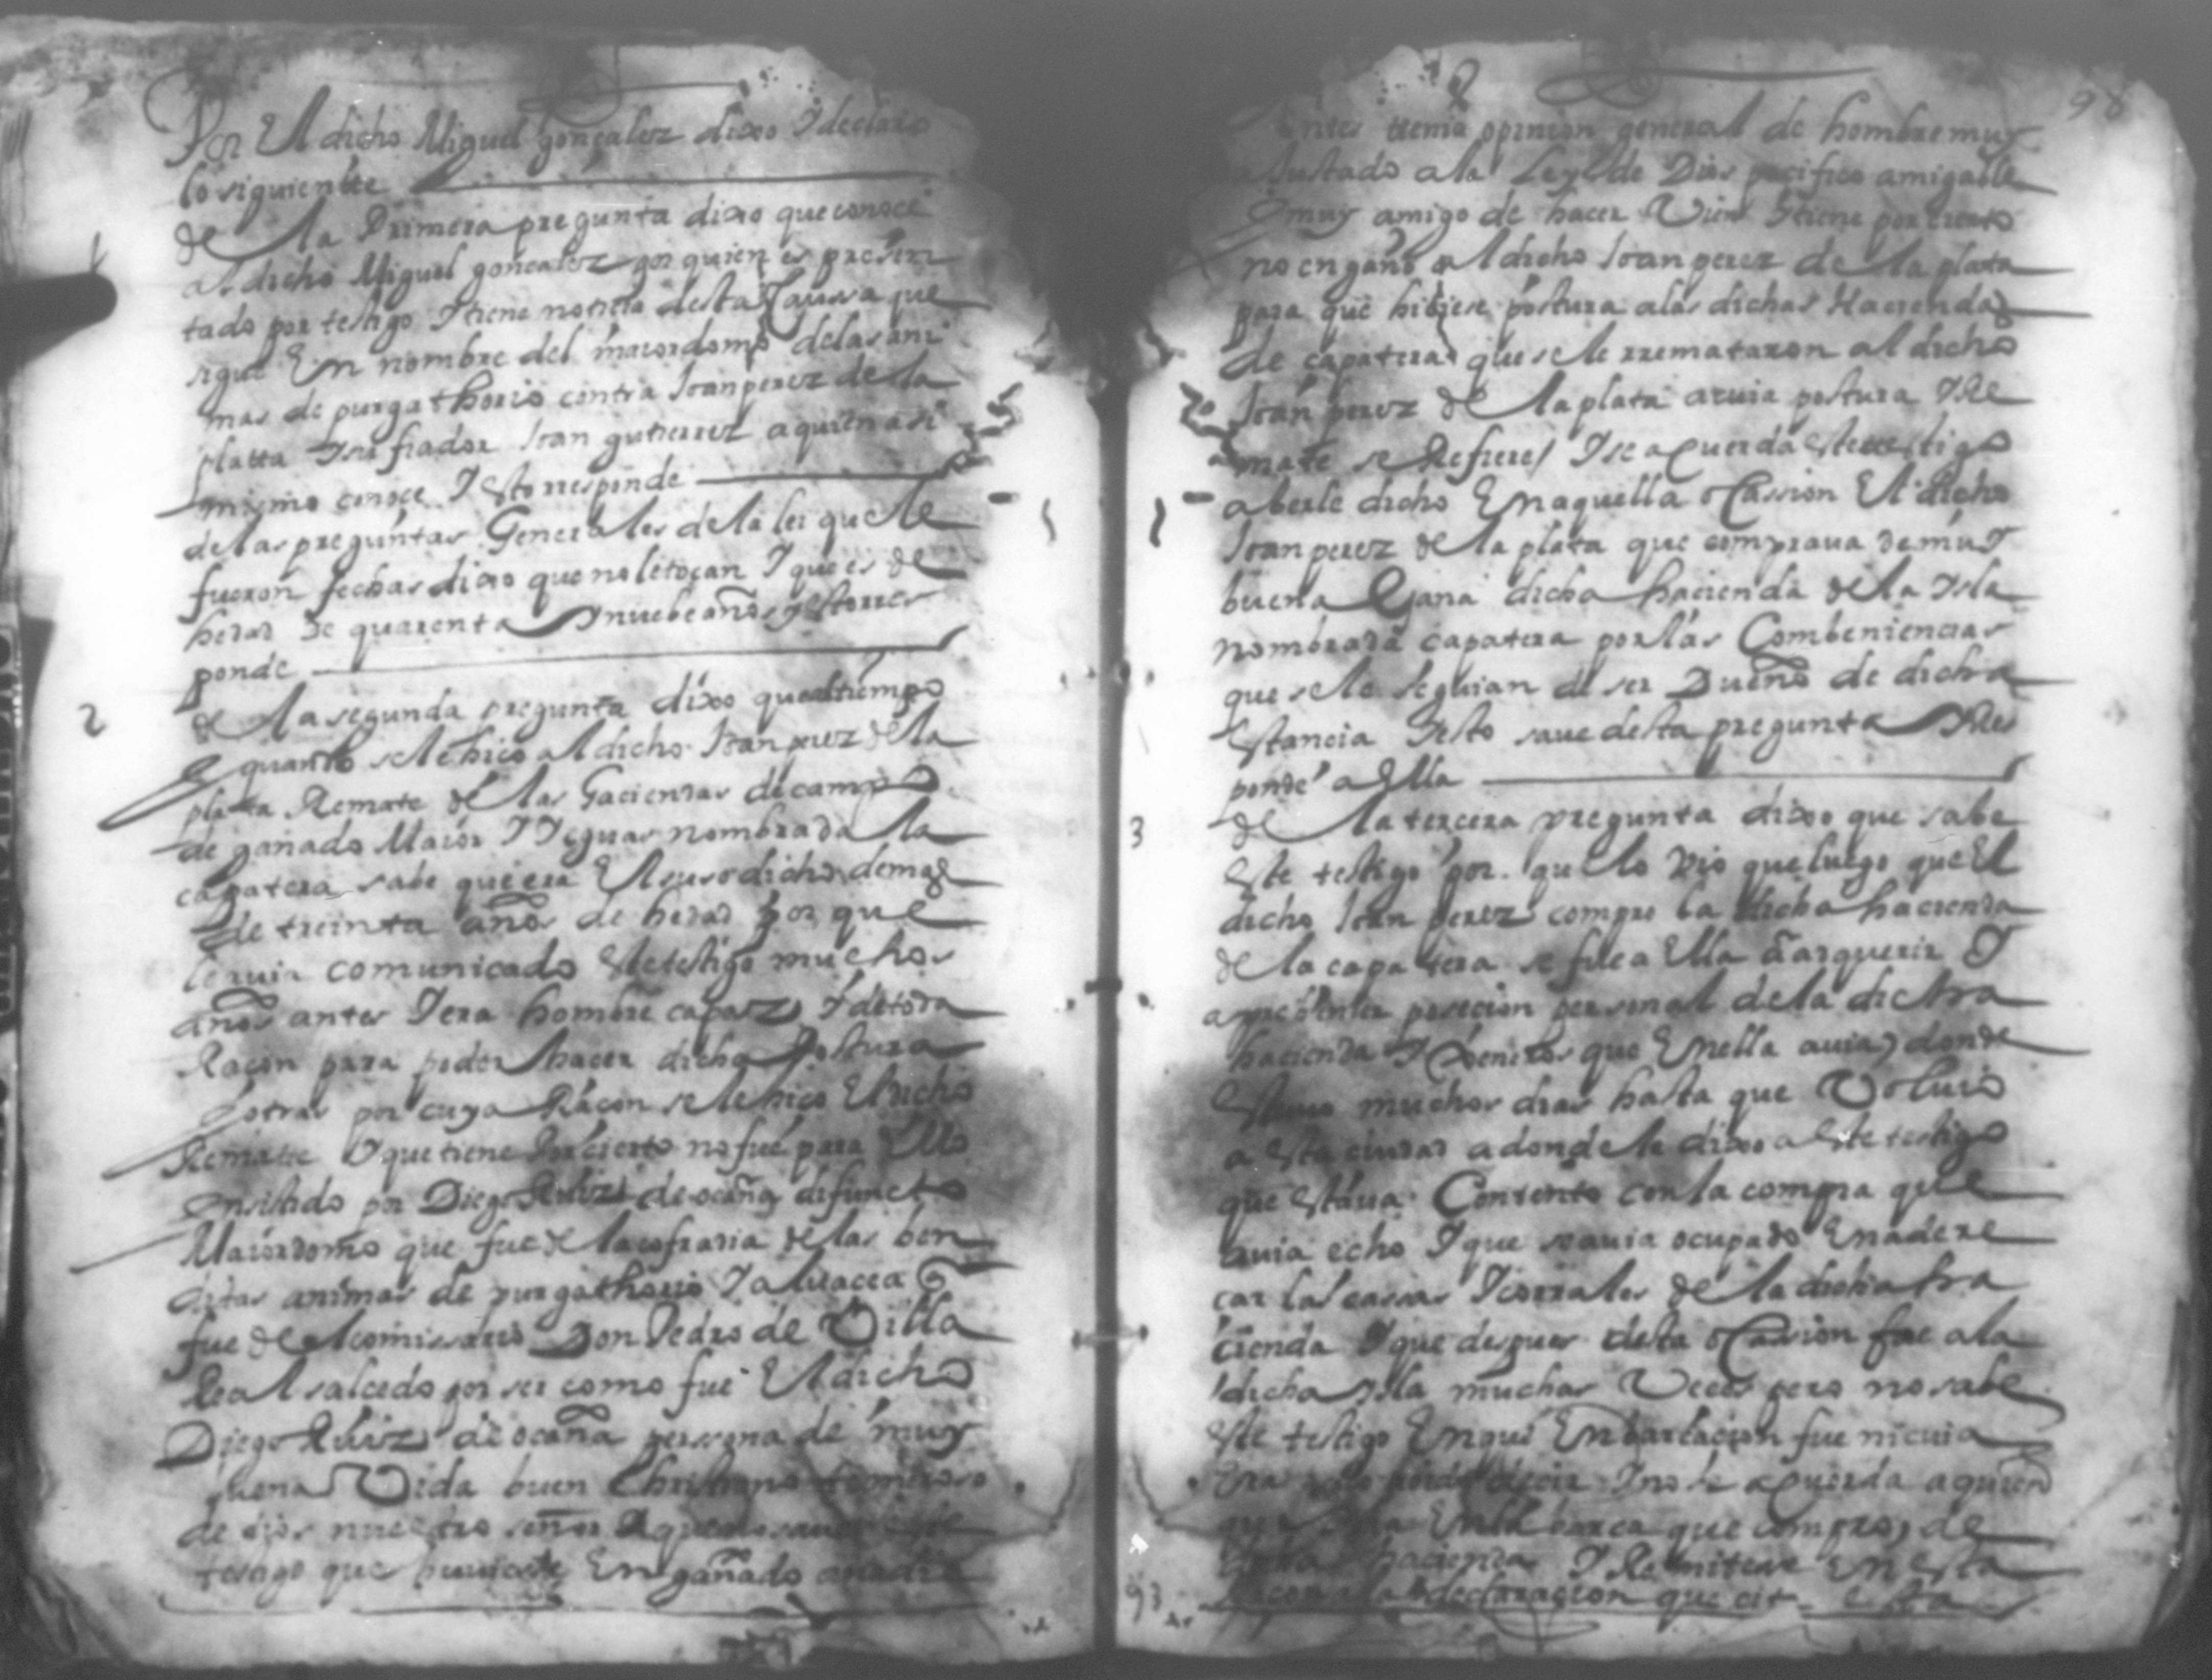 Por El dicho Miguel gonçalez dixo Y declaro
lo siguiente
1 de la Primera pregunta dixo que conoce
al dicho Miguel gonçalez por quien es presen
tado por testigo Y tiene noticia desta Caussa que
sigue En nombre del maiordomo de las ani
mas de purgathorio contra Joan perez de la
platta Y su fiador Joan gutierrez a quien asi
mismo conoce Y Esto rresponde
de las preguntas Generales de la lei que le
fueron fechas dixo que no le tocan Y que es de
hedad de quarenta Y nuebe años y Esto rres
ponde
2 de la segunda pregunta dixo que al tiempo
Y quando se le hiço al dicho Joan perez de la
platta Remate de las Haciendas de campo
de ganado Maior Y Yeguas nombrada la
capatera sabe que era El susodicho de mas
de treinta años de hedad por que
le auia comunicado Este testigo muchos
años antes Y era hombre capaz Y de toda
Raçon para poder hacer dicha Postura
Y otras por cuya Raçon se le hiço El dicho
Rematte Y que tiene Por cierto no fue para Ello
insistado por Diego Ruiz de ocaña difuncto
Maiordomo que fue de la cofradia de las ben
ditas animas de purgathorio Y aluacea q
fue del comissario Don Pedro de Villa
Real salcedo por ser como fue El dicho
Diego Ruiz de ocaña persona de muy
buena Vida buen Christiano temeroso
de dios nuestro señor Y que no saue este
testigo que huuiesse Engañado a nadie
98
antes tenia opinion general de hombre muy
ajustado a la Ley de Dios pacifico amigable
Y muy amigo de hacer Vien Y tiene por cierto
no engaño al dicho Joan perez de la plata
para que hiciese postura a las dichas Haciendas
de capatera que se le rremataron al dicho
Joan perez de la plata a cuia postura Y Re
mate se Refiere Y se aCuerda Este testigo
aberle dicho En aquella oCassion El dicho
Joan perez de la plata que compraua de muy
buena Gana dicha hacienda de la Ysla
nombrada capatera por las Combeniencias
que se le seguian de ser Dueño de dicha
Estancia Y esto saue desta pregunta Y Res
ponde a Ella
3 de la tercera pregunta dixo que sabe
Este testigo por que lo Vio que luego que El
dicho Joan perez compro la dicha hacienda
de la capatera se fue a Ella a adquerir Y
a prehender posecion personal de la dicha
hacienda Y Xeneros que En ella auia, donde
Estuuo muchos dias hasta que Voluio
a Esta ciudad a donde le dixo a Este testigo
que Estaua Contento con la compra que
auia echo Y que se auia ocupado En adere
car las cassas Y corrales de la dicha ha
cienda Y que despues desta oCassion fue a la
dicha Ysla muchas Veces pero no sabe
Este testigo En que Enbarcacion fue ni cuia
Era decir Y no se aCuerda a quien
En la barca que compro, de
dicha hacienda Y Remitese En Esta
Raçon a la declaracion que cit esta
93